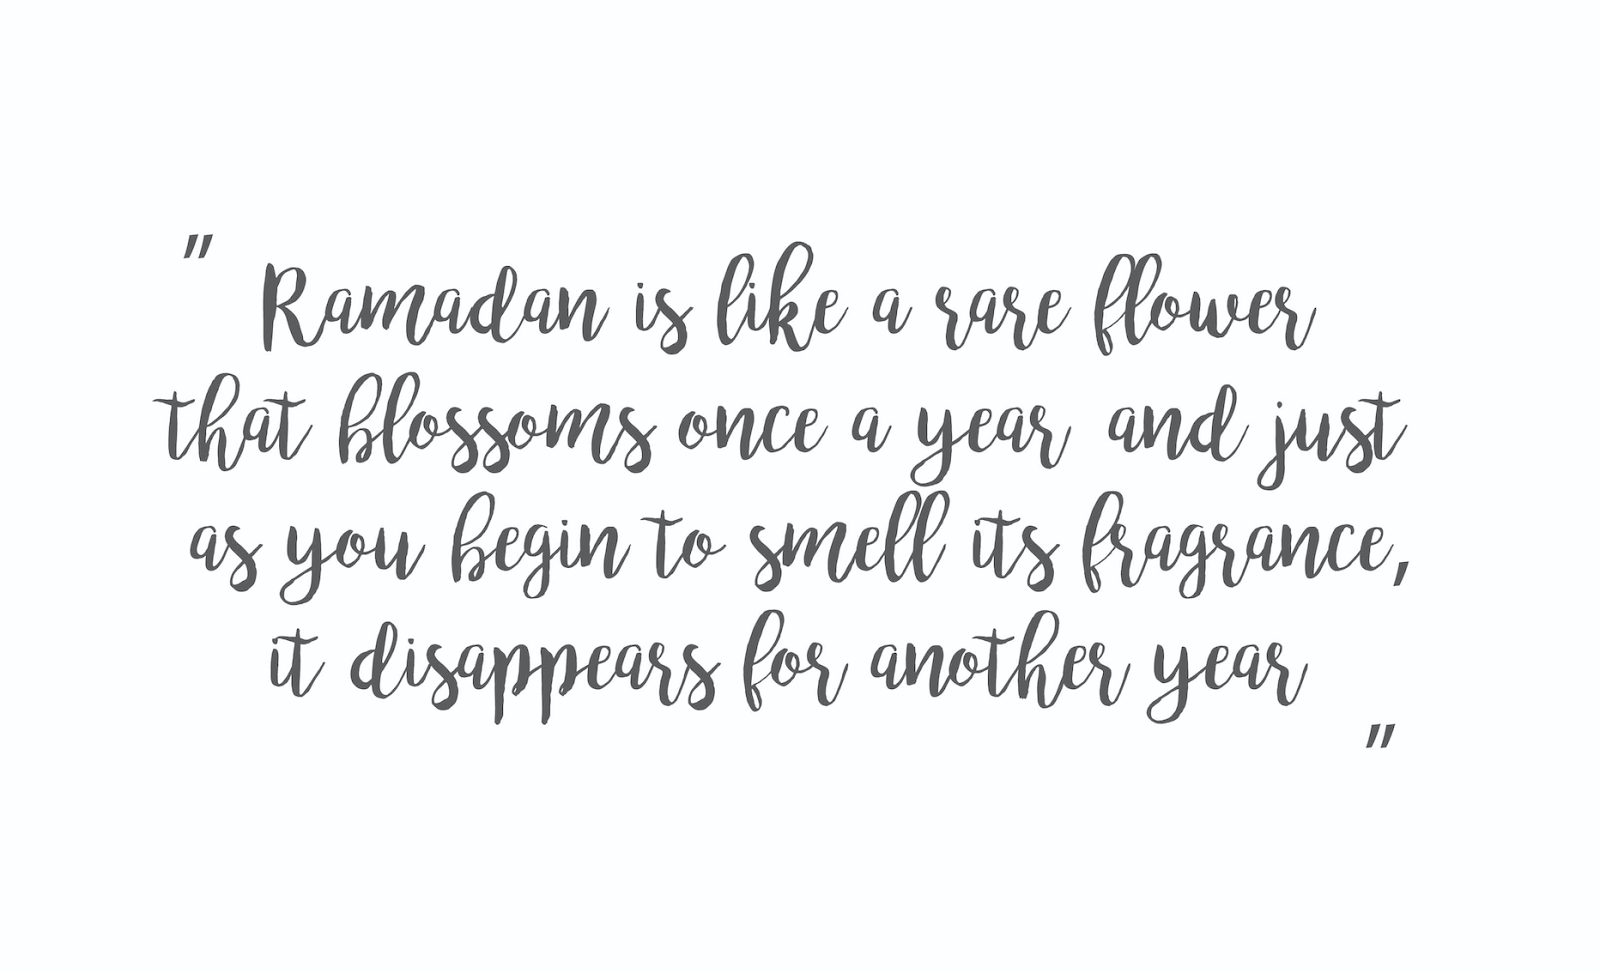 " Ramadan is like a rare flower
that blossoms once a year and just
as you begin to smell its fragrance,
it disappears for another year
"